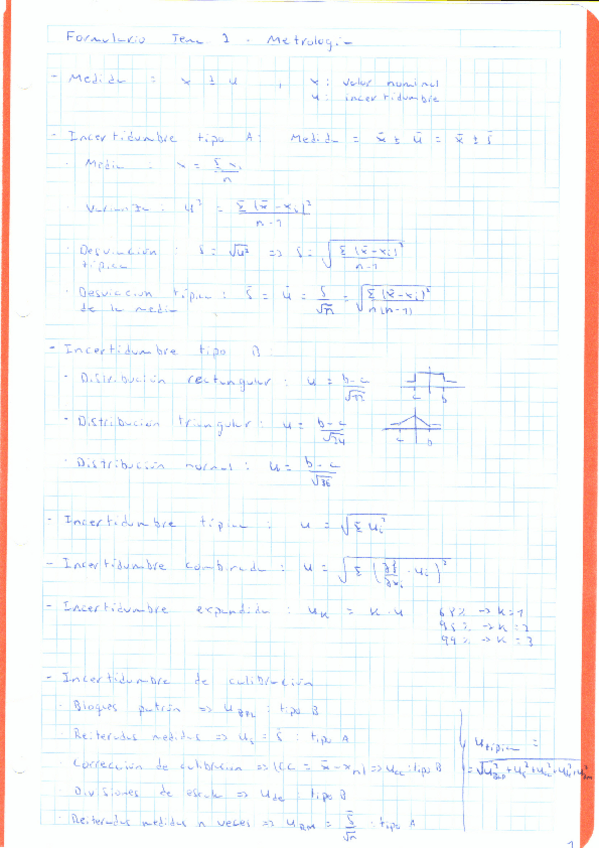 Formulario Tema 1 - Metrología
- Medida = x ± u , x: valor nominal
u: incertidumbre
- Incertidumbre tipo A: Medida = x̄ ± ū = x̄ ± s̄
· Media : x = Σ xi / n
· Varianza : u² = Σ (x̄ - xi)² / n-1
· Desviación típica : s = √u² => s = √( Σ (x̄ - xi)² / n-1 )
· Desviación típica de la media : s̄ = ū = s / √n = √( Σ (x̄ - xi)² / n(n-1) )
- Incertidumbre tipo B:
· Distribución rectangular : u = b-c / √12
c b
· Distribución triangular : u = b-c / √24
c b
· Distribución normal : u = b-c / √36
- Incertidumbre típica : u = √( Σ ui² )
- Incertidumbre combinada : u = √( Σ ( ∂f/∂xi · ui )² )
- Incertidumbre expandida : uK = K · u
68% -> K=1
95% -> K=2
99% -> K=3
- Incertidumbre de calibración
· Bloques patrón => : tipo B
· Reiteradas medidas => us = s̄ : tipo A
· Corrección de calibración => (Cc = x̄ - xn) => ucc : tipo B
· Divisiones de escala => ude : tipo B
· Reiteradas medidas n veces => uRM = s̄ / √n : tipo A
utípica =
1